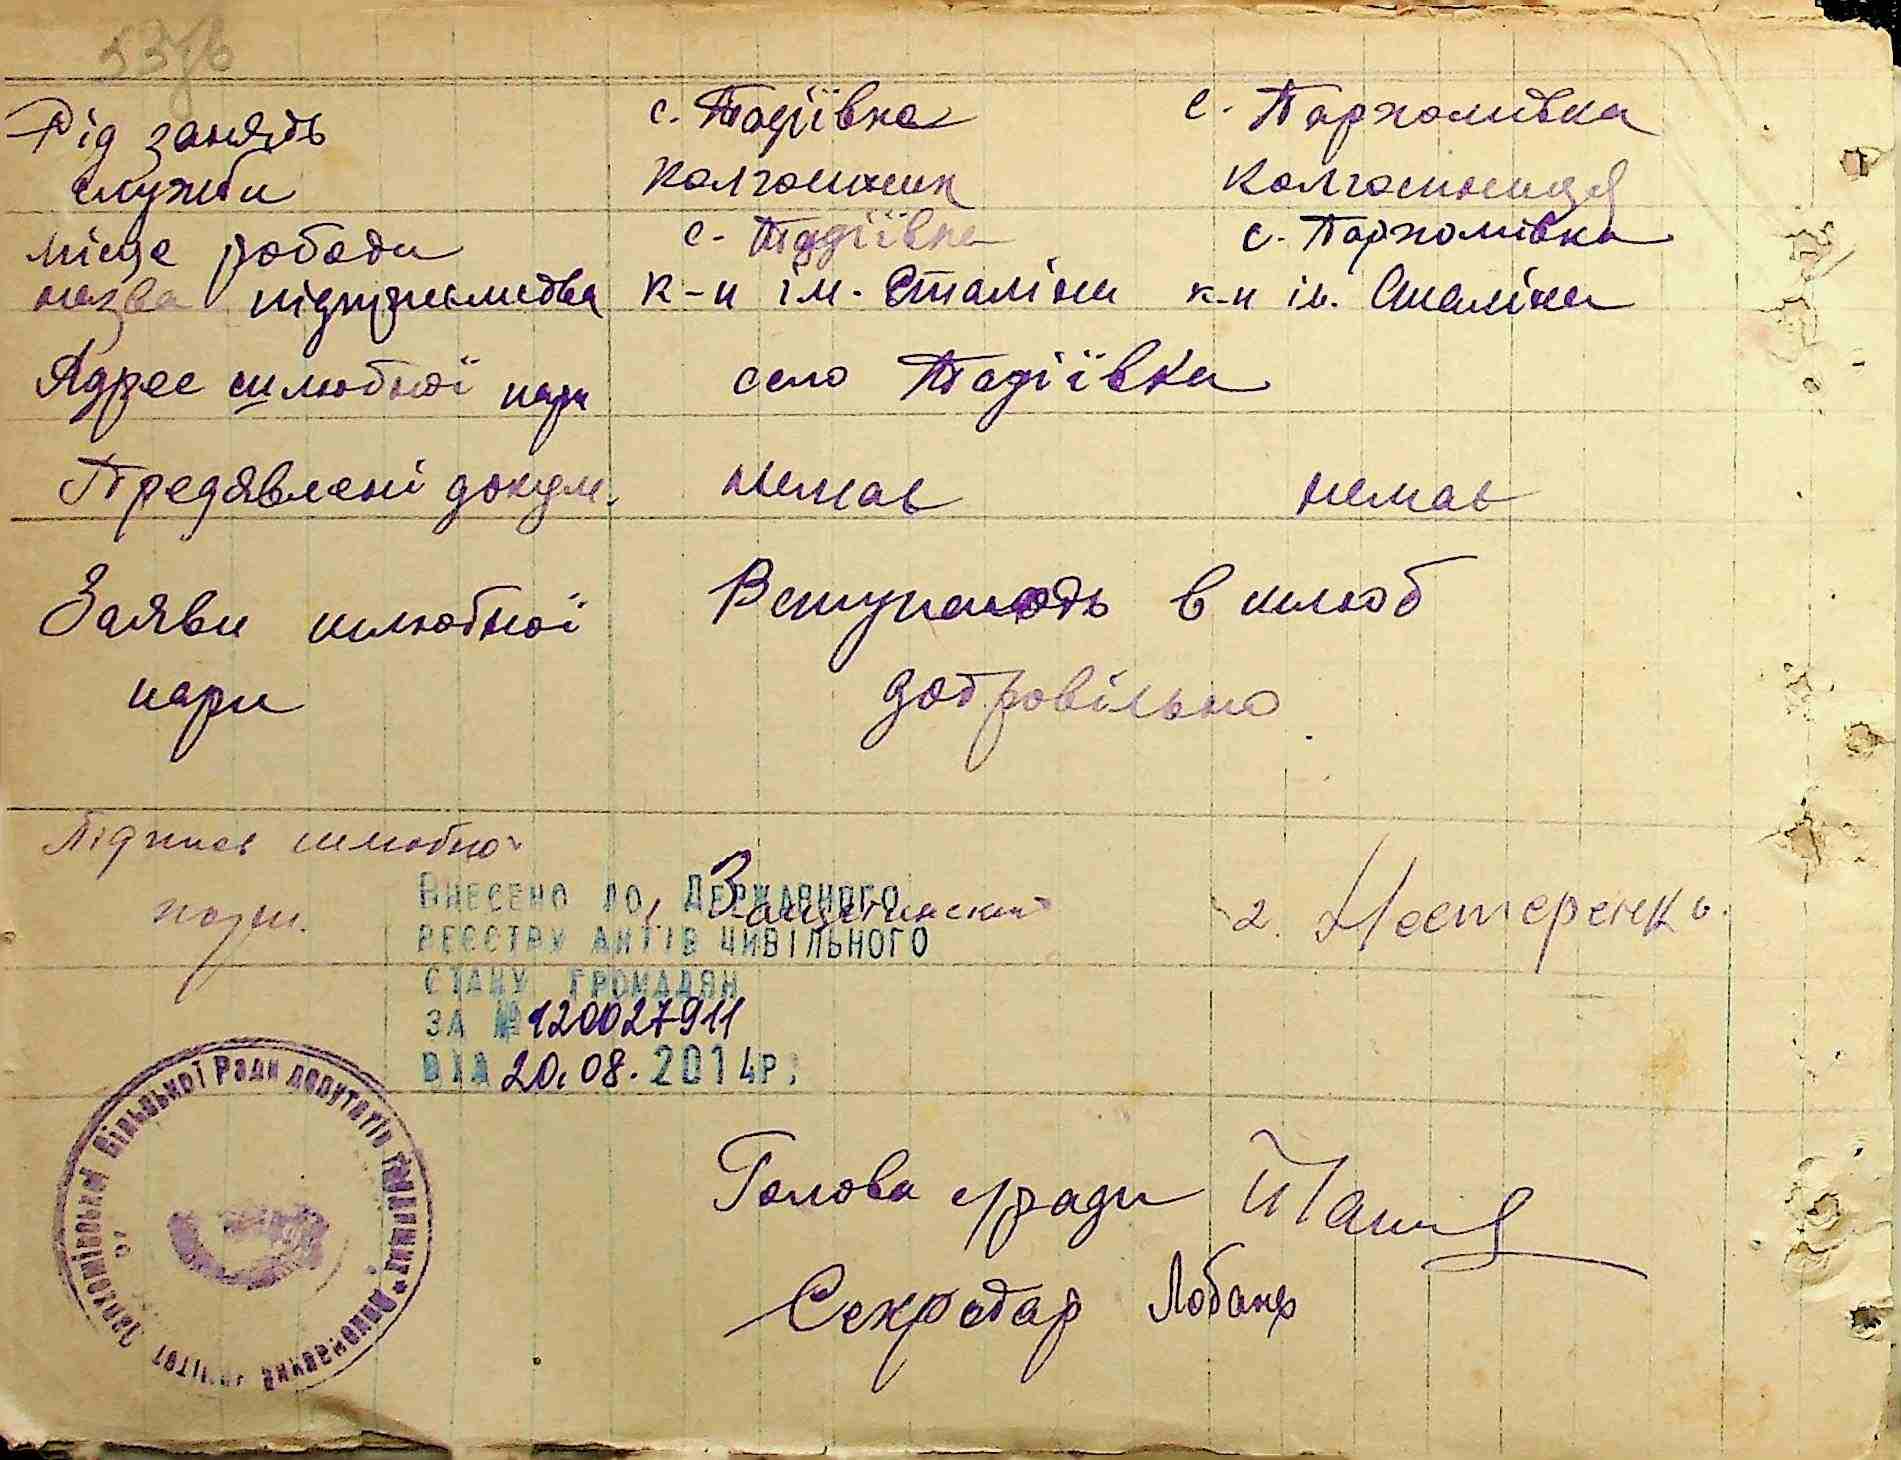 Рід занять с. Тадіївка с. Пархомівка
служби колгоспник колгоспниця
місце роботи с. Тадіївка с. Пархомівка
назва підприємства к-п ім. Сталіна к-п ім. Сталіна
Адрес шлюбної пари село Тадіївка
Предявлені докум. немає немає
Заяви шлюбної Вступають в шлюб
пари добровільно
Підписи шлюбної
пари. 2. Нестеренко.
Внесено до Державного
реєстру актів цивільного
стану громадян
за № 120027911
від 20.08.2014р.
Голова с/ради
Секретар
Сільської Ради депутатів трудящих * Виконавчий комітет